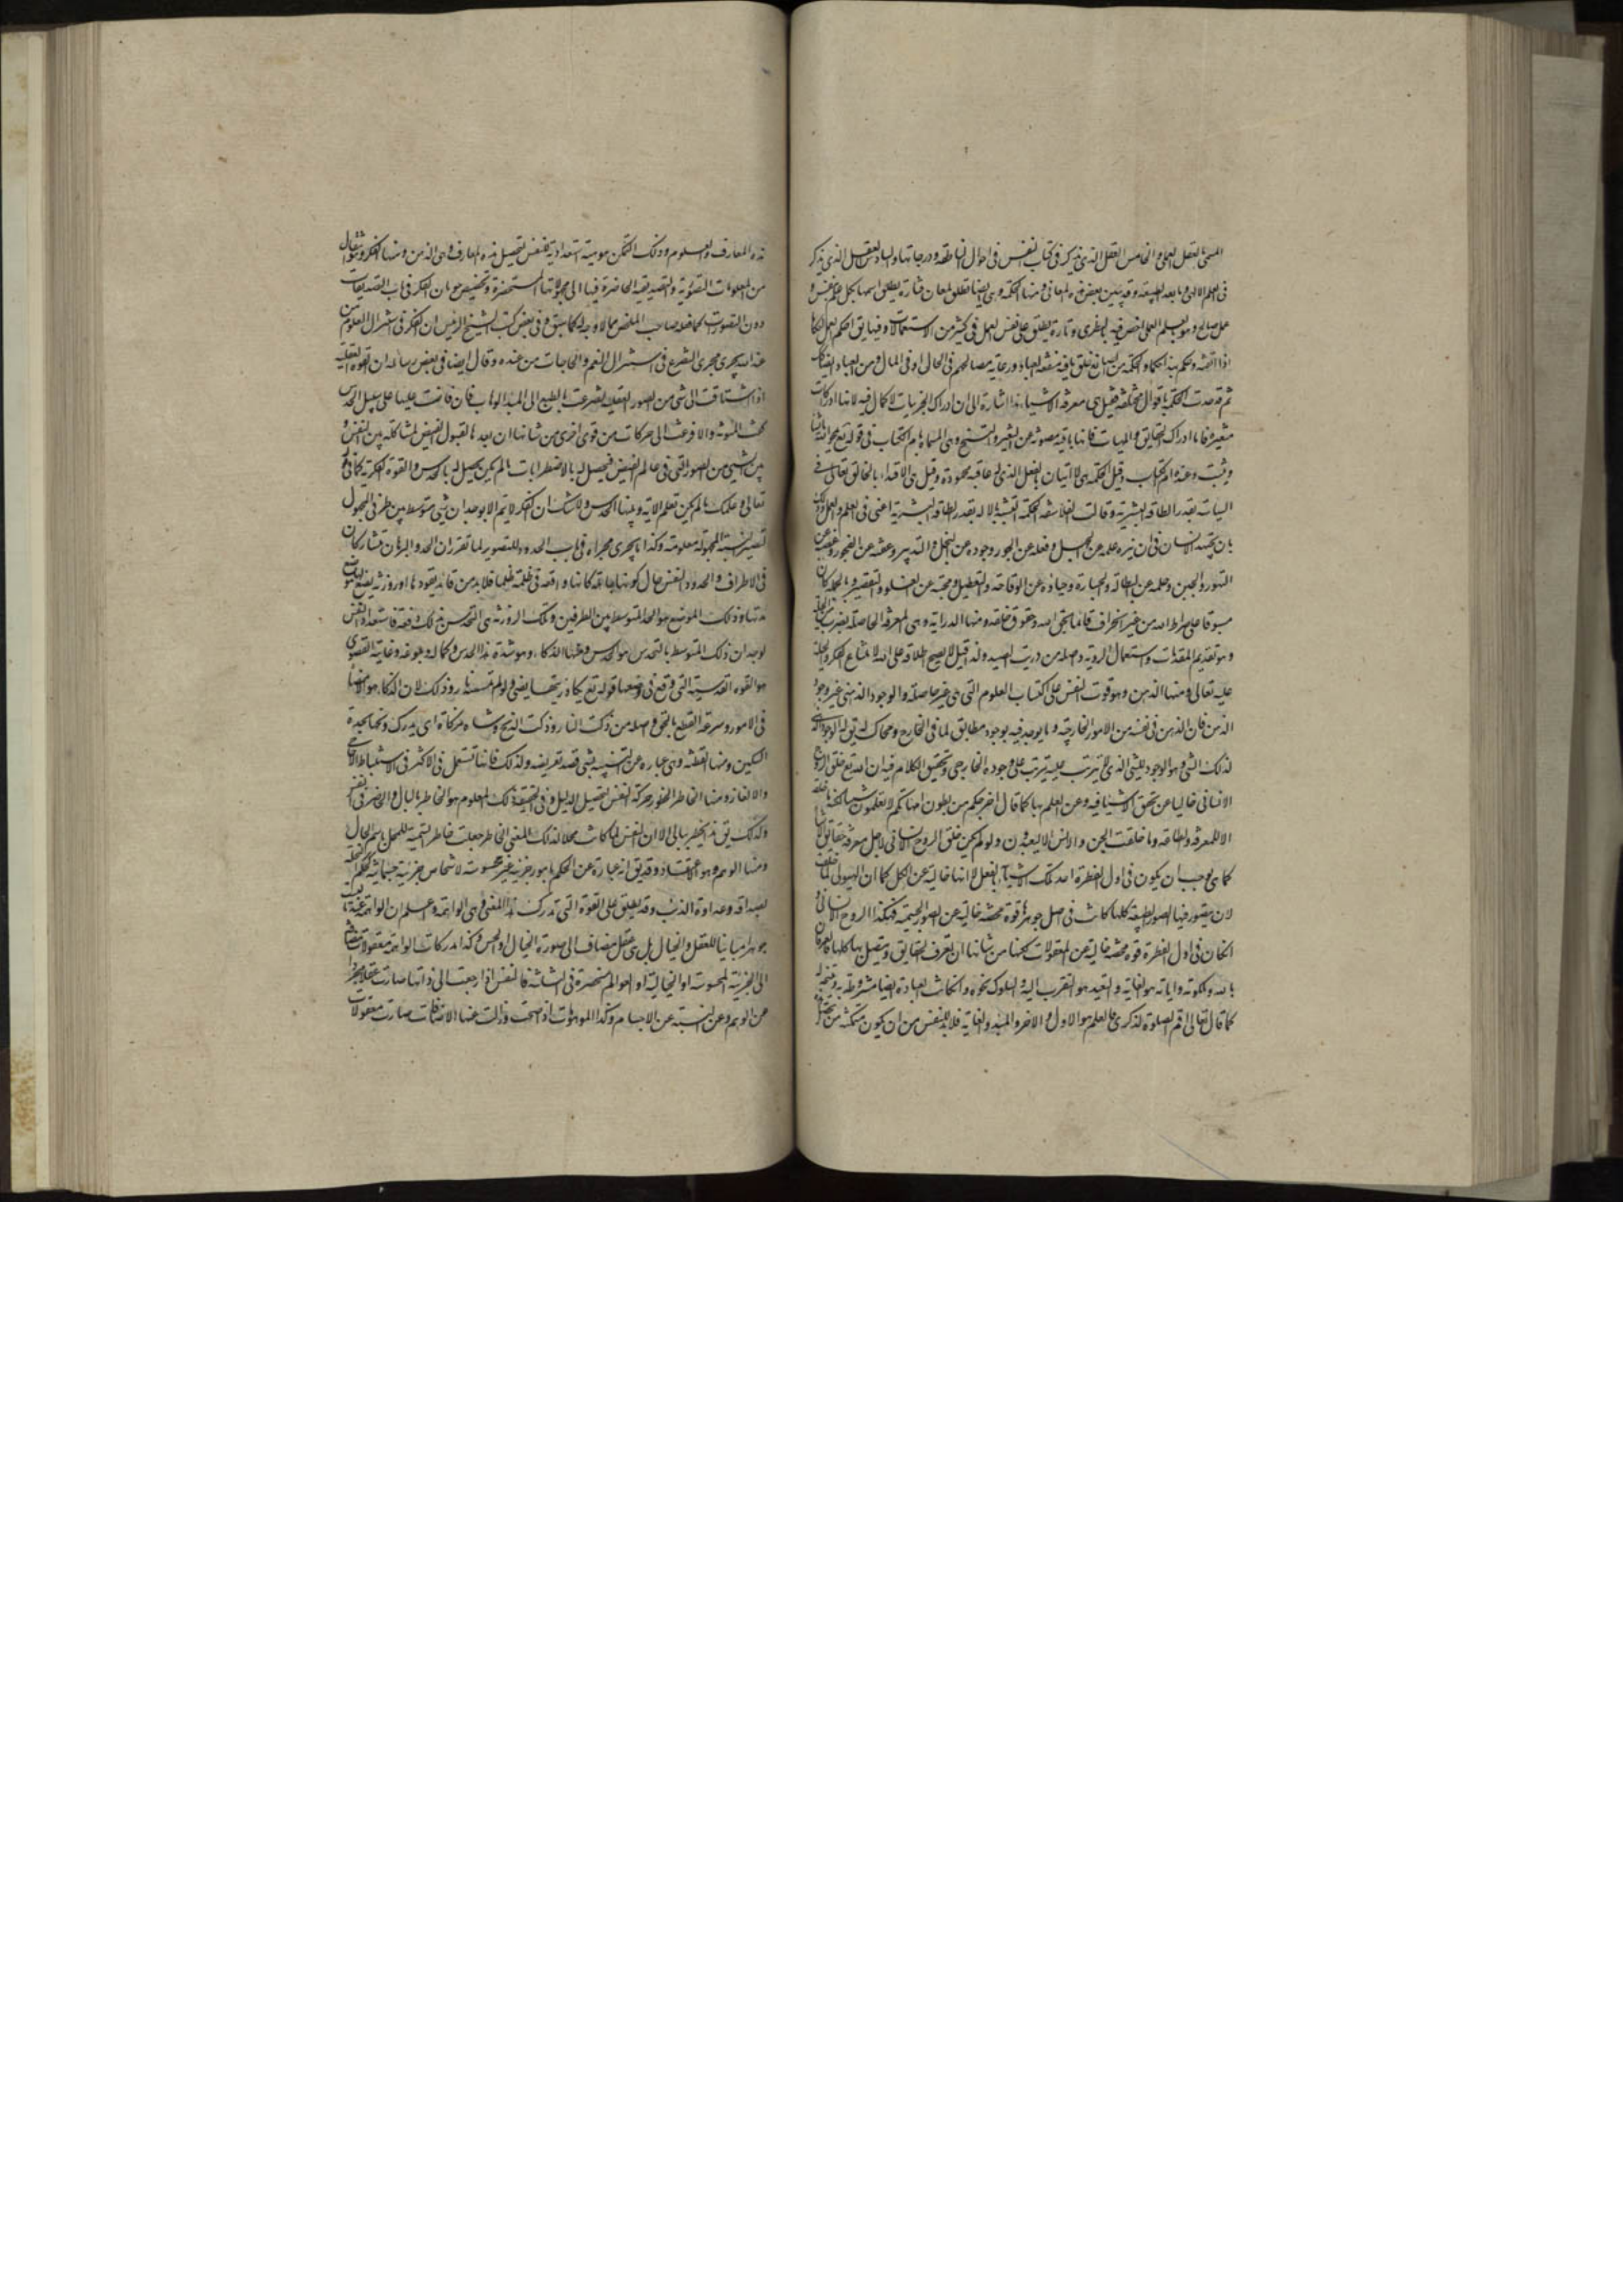 المسمى بالعقل العملي والخامس العقل الذي يذكر في كتاب النفس في احوال الناطقة ودرجاتها والسادس العقل الذي يذكر
في العلم الالهي وما بعد الطبيعة وقد يتبين بعض هذه المعاني ومنها الحكمة وهي ايضا تطلق لمعان فتارة يطلق اسمها لكل علم حسن و
عمل صالح وهو بالعلم العملي اخص منه بالنظري وتارة يطلق على نفس العمل في كثير من الاستعمالات وفيها يق احكم العمل احكاما
اذا اتقنه وحكم بهذا احكاما والحكمة من الصانع خلق ما فيه منفعة العباد ورعاية مصالحهم في الحال او في المال ومن العباد ايضا كك
ثم قد حدت الحكمة باقوال مختلفة فقيل هي معرفة الاشياء هذا اشارة الى ان ادراك الجزئيات لا كمال فيه لانها ادراكات
متغيرة فاما ادراك الحقايق والمهيات فانها باقية مصونة عن التغير والنسخ وهي المسماة بام الكتاب في قوله تع يمحو الله ما يشاء
ويثبت وعنده ام الكتاب وقيل الحكمة هي الاتيان بالفعل الذي له عاقبة محمودة وقيل هي الاقتداء بالخالق تعالى في
السياسات بقدر الطاقة البشرية وقالت الفلاسفة الحكمة التشبه بالاله بقدر الطاقة البشرية اعني في العلم والعمل وذلك
بان يجتهد الانسان في ان ينزه علمه عن الجهل وفعله عن الجور وجوده عن البخل والتدبير وعفته عن الفجور وغضبه عن
التهور والجبن وحلمه عن البطالة والجسارة وحياؤه عن الوقاحة والتعطيل ومحبته عن الغلو والتقصير وبالجملة كان
مستويا على صراط الله من غير انحراف قائما بحق الله وحقوق خلقه ومنها الدراية وهي المعرفة الحاصلة بضرب من الحيلة
وهو تقديم المقدمات واستعمال الروية واصله من دريت الصيد ولذا قيل لا يصح اطلاقه على الله لامتناع الفكر والحيلة
عليه تعالى ومنها الذهن وهو قوت النفس على اكتساب العلوم التي هي غير حاصلة والوجود الذهني غير وجود
الذهن فان الذهن في نفسه من الامور الخارجية وما يوجد فيه بوجود مطابق لما في الخارج ومحاك له يق له الوجود الذهني
لذلك الشي وهو الوجود للشي الذي لا يترتب عليه ما يترتب على وجوده الخارجي وتحقيق الكلام فيه ان الله تع خلق الروح
الانساني خاليا عن تحقق الاشياء فيه وعن العلم بها كما قال اخرجكم من بطون امهاتكم لا تعلمون شيئا لكنه ما خلقه
الا للمعرفة والطاعة وما خلقت الجن والانس الا ليعبدون ولو لم يكن خلق الروح الانساني لاجل معرفة حقايق الاشياء
كما هي لوجب ان يكون في اول الفطرة احد تلك الاشياء بالفعل لا انها خالية عن الكل كما ان الهيولى لما خلقت
لان يتصور فيها الصور الطبيعية كلها كانت في اصل جوهرها قوة محضة خالية عن الصور الجسمية فهكذا الروح الانساني و
ان كان في اول الفطرة قوة محضة خالية عن المعقولات لكنها من شانها ان تعرف الحقايق وتتصل بها كلها فالعرفان
بالله وملكوته واياته هو الغاية والتعبد هو التقرب اليه والسلوك نحوه وان كانت العبادة ايضا مشروطة به ونتيجة له
كما قال تعالى اقم الصلوة لذكري فالعلم هو الاول والاخر والمبدء والغاية فلا بد للنفس من ان يكون متمكنة من تحصيل
هذه المعارف والعلوم وذلك التمكن هو هيئة استعدادية للنفس لتحصيل هذه المعارف وهي الذهن ومنها الفكر وهو انتقال النفس
من المعلومات التصورية والتصديقية الحاضرة فيها الى مجهولاتها المستحضرة وتخصيص جريان الفكر في باب التصديقات
دون التصورات كما فعله صاحب الملخص مما لا وجه له كما سبق وفي بعض كتب الشيخ الرئيس ان الفكر في استنزال العلوم من
عند الله يجري مجرى التضرع في استنزال النعم والحاجات من عنده وقال ايضا في بعض رسائله ان القوة العقلية
اذا اشتاقت الى شي من الصور العقلية تضرعت بالطبع الى المبدء الوهاب فان فاضت عليها على سبيل الحدس
كفت المؤنة والا فزعت الى حركات من قوى اخرى من شانها ان يعدها لقبول الفيض لمشاكلة بين النفس و
بين الشي من الصور التي في عالم الفيض فيحصل له بالاضطراب ما لم يكن يحصل له بالحدس والقوة الفكرية كما في قوله
تعالى وعلمك ما لم تكن تعلم الاية ومنها الحدس ولا شك ان الفكر لا يتم الا بوجدان شي متوسط بين طرفي المجهول
لتصير النسبة المجهولة معلومة وكذا ما يجري مجراه في باب الحدود للتصور لما تقرر ان الحد والبرهان متشاركان
في الاطراف والحدود والنفس حال كونها جاهلة كانها واقعة في ظلمة ظلماء فلا بد من قائد يقودها او روزنة يضيء لها موضع
قدمها وذلك الموضع هو الحد المتوسط بين الطرفين وتلك الروزنة هي التحدس بذلك دفعة فاستعداد النفس
لوجدان ذلك المتوسط بالتحدس هو الحدس ومنها الذكاء وهو شدة هذا الحدس وكماله وبلوغه وغايته القصوى
هو القوة القدسية التي وقع في وصفها قوله تع يكاد زيتها يضيء ولو لم تمسسه نار وذلك لان الذكاء هو الامضاء
في الامور وسرعة القطع بالحق واصله من ذكت النار وذكت الذبح وشاة مذكاة اي يدرك ذبحها بحدة
السكين ومنها الفطنة وهي عبارة عن التنبه بشي قصد تعريفه ولذلك فانها تستعمل في الاكثر في استنباط الاحاجي
والالغاز ومنها الخاطر الخطور حركة النفس لتحصيل الدليل وفي الحقيقة ذلك المعلوم هو الخاطر بالبال والحاضر في النفس
ولذلك يق هذا خطر ببالي الا ان النفس لما كانت محلا لذلك المعنى الخاطر جعلت خاطر التسمية للمحل باسم الحال
ومنها الوهم وهو الاعتقاد وقد يق انه عبارة عن الحكم بامور جزئية غير محسوسة لاشخاص جزئية جسمانية كحكم السخلة
بصداقة وعداوة الذئب وقد يطلق على القوة التي تدرك هذا المعنى وهي الواهمة واعلم ان الواهمة عندنا ليست
جوهرا مباينا للعقل والخيال بل هي عقل مضاف الى صورة الخيال او الحس وكذا مدركات الواهمة معقولات مضافة
الى الجزئية المحسوسة او الخيالية او العوالم منحصرة في الثلاثة فالنفس اذا رجعت الى ذاتها صارت عقلا مجردا
عن الوهم وعن النسبة عن الاجسام وكذا الموهومات اذ صحت وزالت عنها الاضافات صارت معقولات